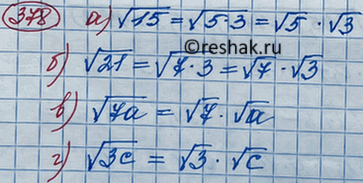 378 а) √15 = √5·3 = √5 · √3
©reshak.ru
б) √21 = √7·3 = √7 · √3
в) √7a = √7 · √a
г) √3c = √3 · √c